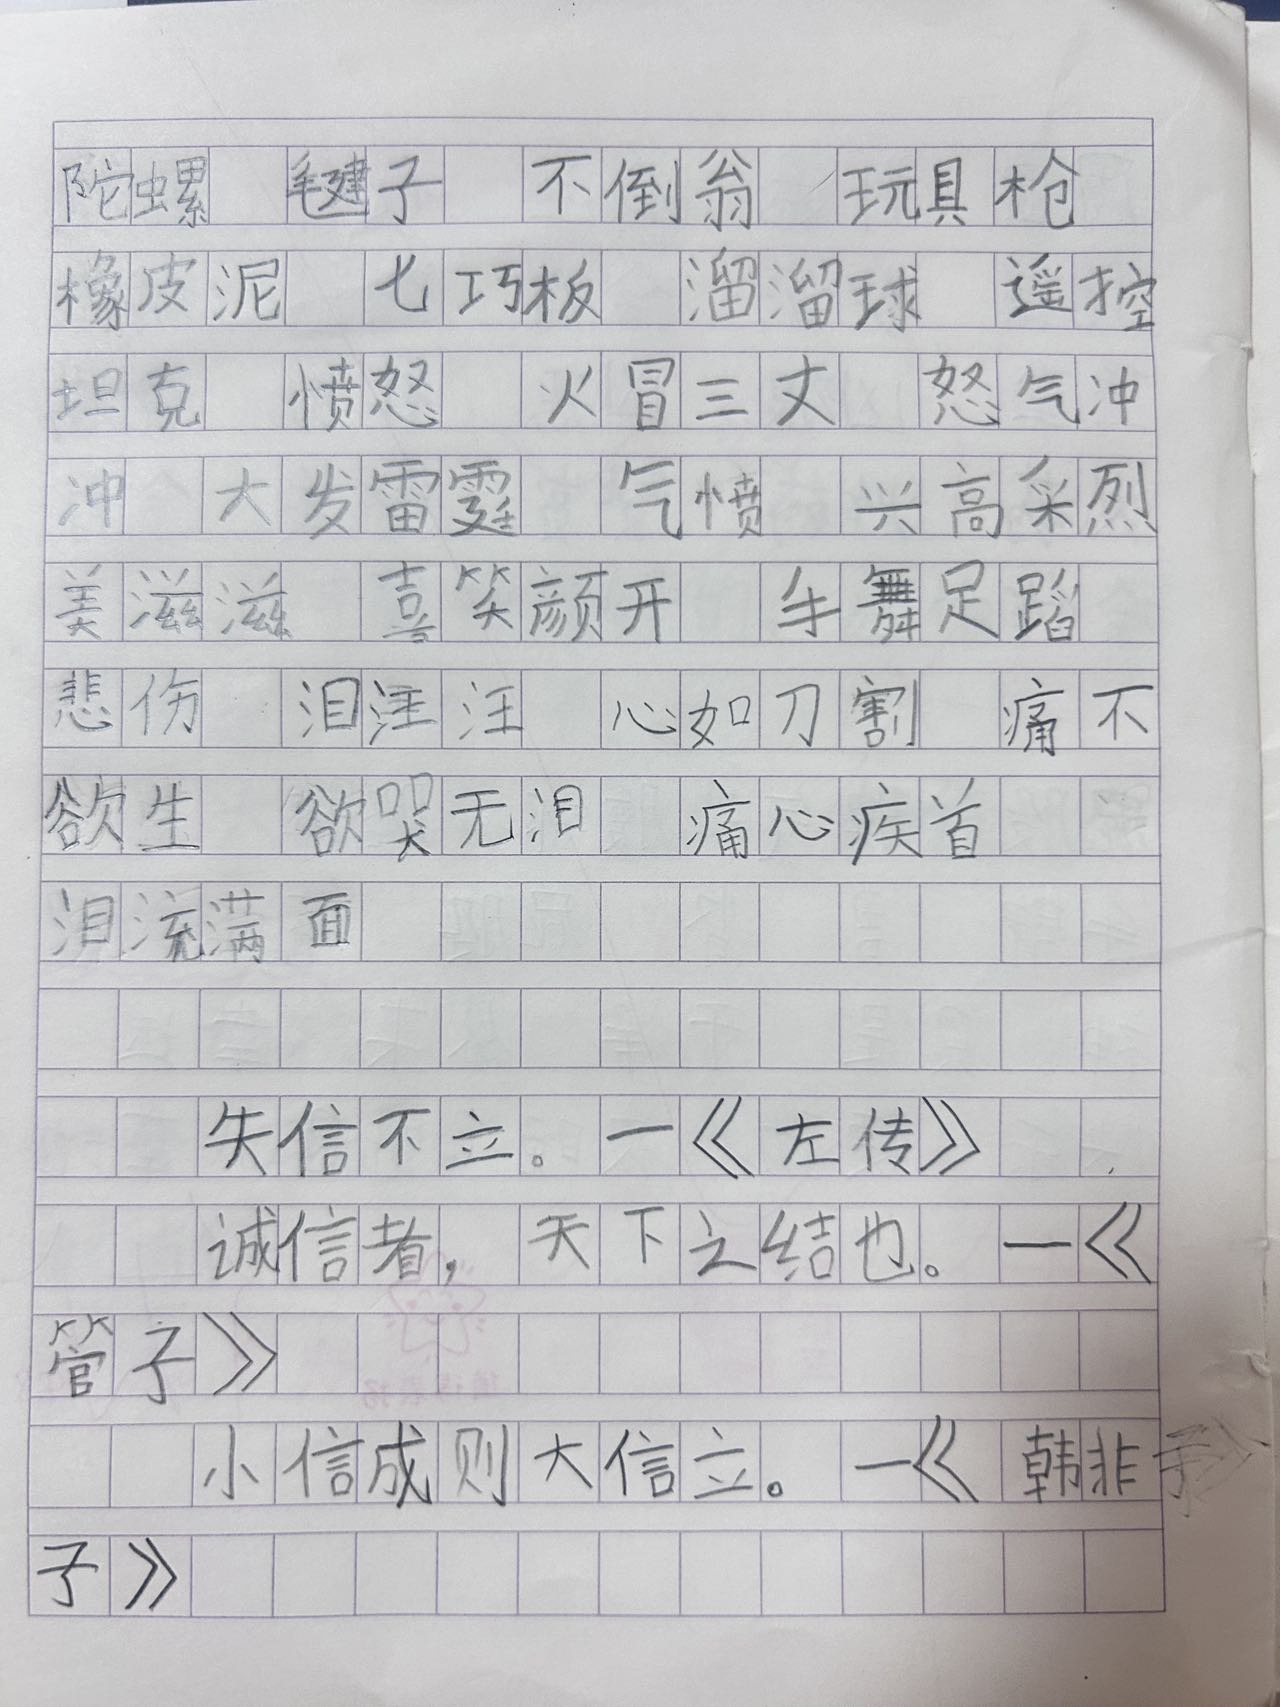 陀螺 毽子 不倒翁 玩具枪
橡皮泥 七巧板 溜溜球 遥控
坦克 愤怒 火冒三丈 怒气冲
冲 大发雷霆 气愤 兴高采烈
美滋滋 喜笑颜开 手舞足蹈
悲伤 泪汪汪 心如刀割 痛不
欲生 欲哭无泪 痛心疾首
泪流满面
失信不立。—《左传》
诚信者，天下之结也。—《
管子》
小信成则大信立。—《韩非
子》